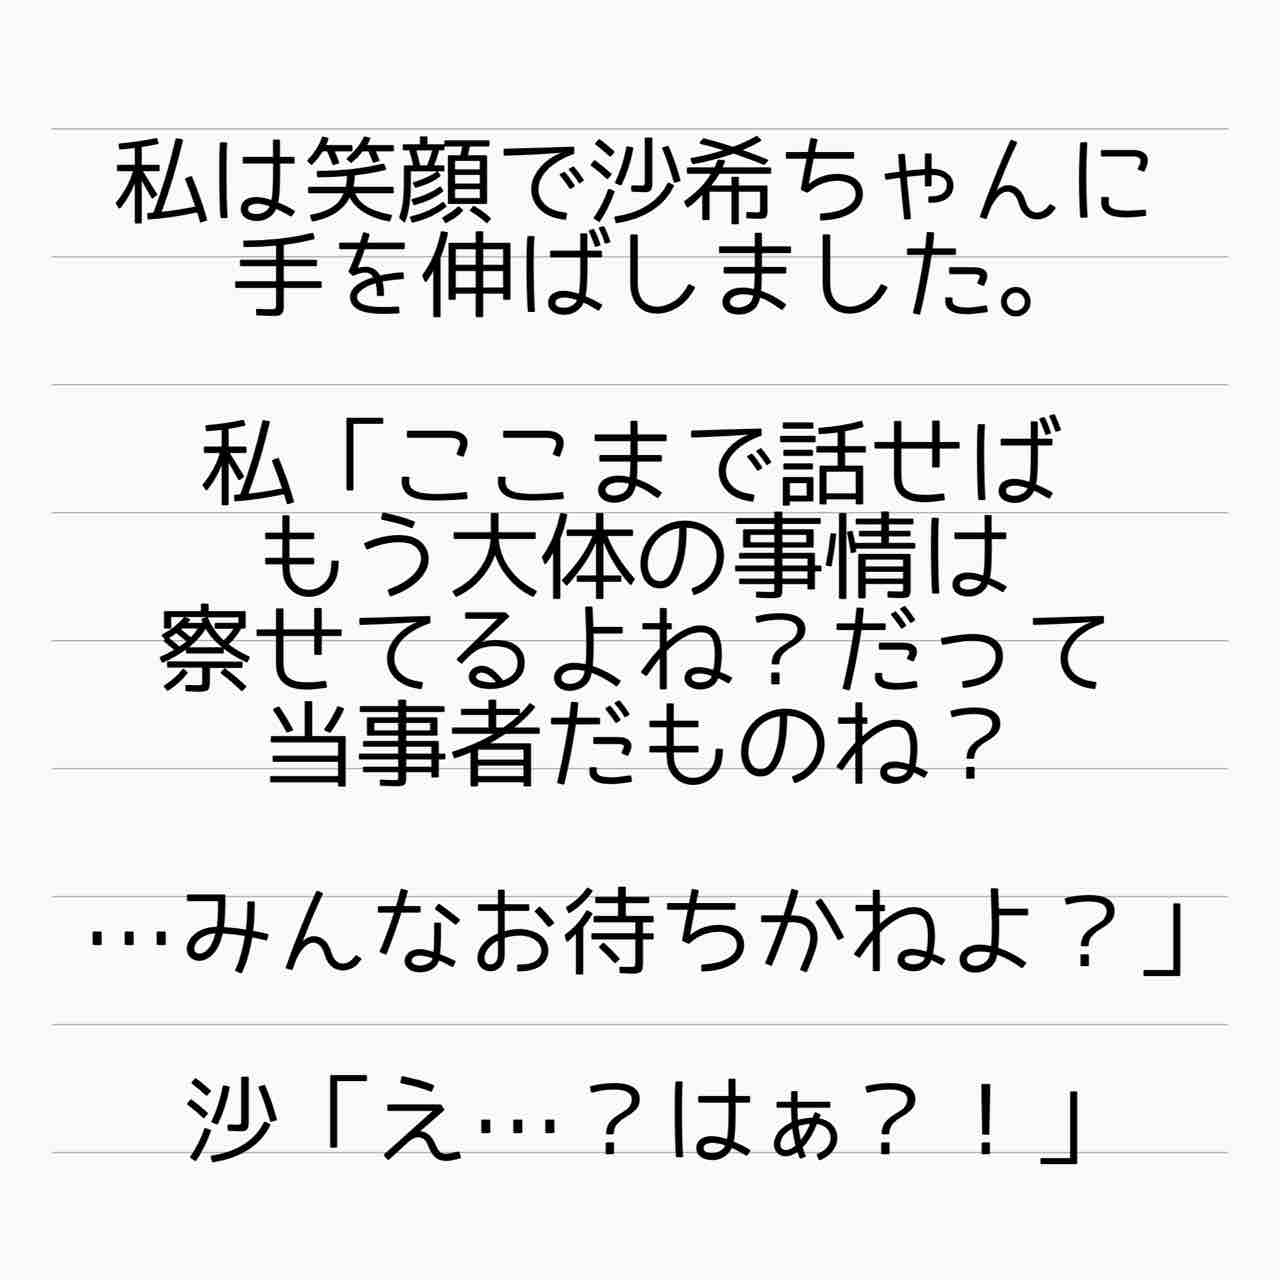 私は笑顔で沙希ちゃんに
手を伸ばしました。
私「ここまで話せば
もう大体の事情は
察せてるよね？だって
当事者だものね？
…みんなお待ちかねよ？」
沙「え…？はぁ？！」